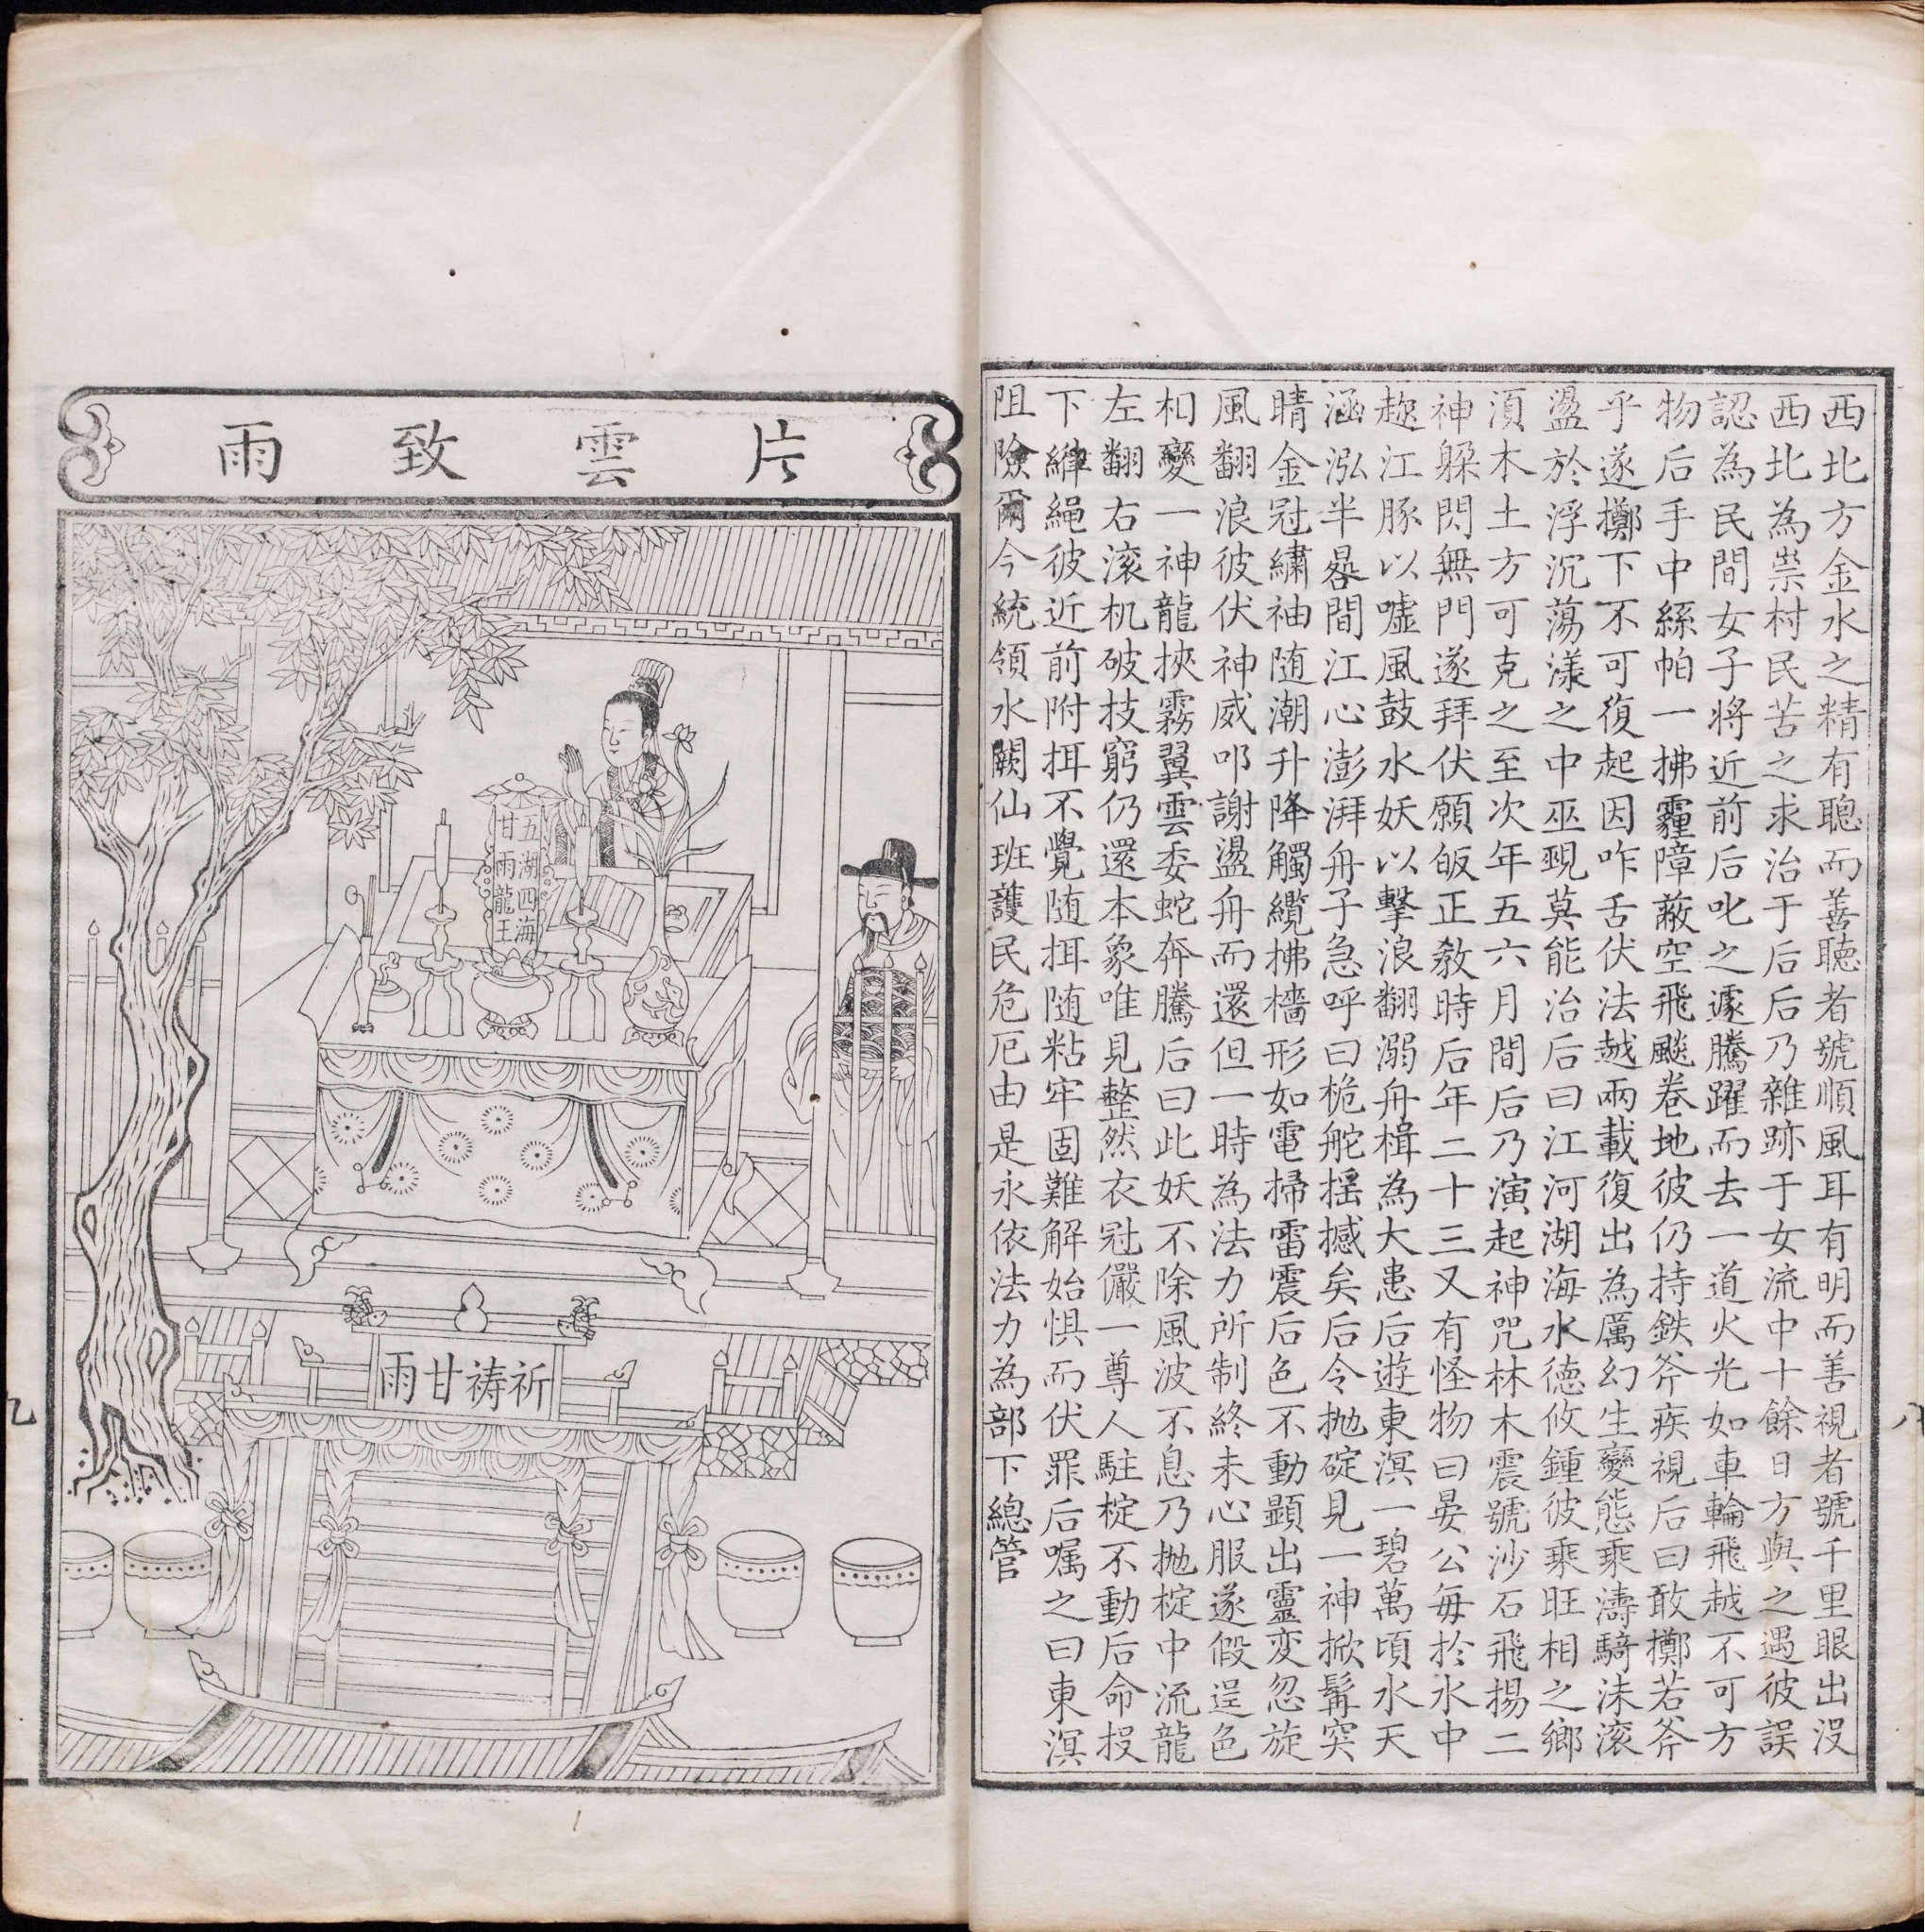 西北方金水之精有聰而善聽者號順風耳有明而善視者號千里眼出没
西北為祟村民苦之求治于后后乃雜跡于女流中十餘日方與之遇彼誤
認為民間女子将近前后叱之遽騰躍而去一道火光如車輪飛越不可方
物后手中絲帕一拂霾障蔽空飛颷卷地彼仍持鉄斧疾視后曰敢擲若斧
乎遂擲下不可復起因咋舌伏法越兩載復出為厲幻生變態乘濤騎沫滚
盪於浮沉蕩漾之中巫覡莫能治后曰江河湖海水德攸鍾彼乘旺相之鄉
須木土方可克之至次年五六月間后乃演起神咒林木震號沙石飛揚二
神躱閃無門遂拜伏願皈正教時后年二十三又有怪物曰晏公每於水中
趂江豚以噓風鼓水妖以擊浪翻溺舟楫為大患后遊東溟一碧萬頃水天
涵泓半晷間江心澎湃舟子急呼曰桅舵揺撼矣后令抛碇見一神掀髯突
睛金冠繡袖随潮升降觸纜拂檣形如電掃雷震后色不動顯出靈变忽旋
風翻浪彼伏神威叩謝盪舟而還但一時為法力所制終未心服遂假逞色
相變一神龍挾霧翼雲委蛇奔騰后曰此妖不除風波不息乃抛椗中流龍
左翻右滚机破技窮仍還本象唯見整然衣冠儼一尊人駐椗不動后命投
下繂繩彼近前附挕不覺随挕随粘牢固難解始惧而伏罪后嘱之曰東溟
阻險爾今統領水闕仙班護民危厄由是永依法力為部下總管
八
片雲致雨
五湖四海
甘雨龍王
祈祷甘雨
九